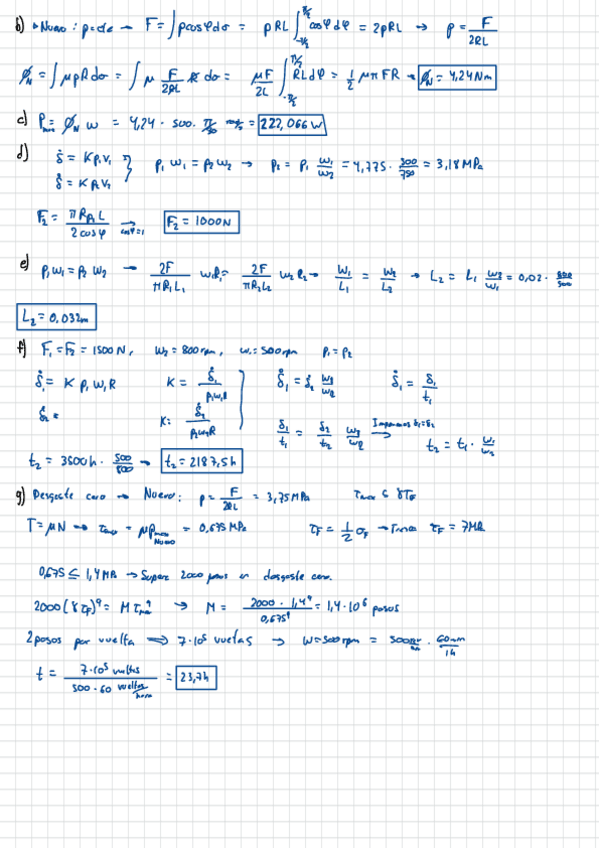 b) • Nuevo: p=cte → F = ∫pcosφdσ = pRL ∫_{-π/2}^{π/2} cosφdφ = 2pRL → p = F/2RL
= ∫μpRdσ = ∫μ F/2RL R dσ = μF/2L ∫_{-π/2}^{π/2} RLdφ = 1/2 μπFR → = 4,24Nm
c) ω = 4,24 · 500 · π/30 = 222,066W
d) δ̇ = K p₁v₁
δ̇ = K p₂v₂
p₁ω₁ = p₂ω₂ → p₂ = p₁ ω₁/ω₂ = 4,775 · 500/750 = 3,18MPa
F₂ = πRp₂L/2cosφ → cosφ=1 F₂ = 1000N
e) p₁ω₁ = p₂ω₂ → 2F/πR₁L₁ ω₁R₁ = 2F/πR₂L₂ ω₂R₂ → ω₁/L₁ = ω₂/L₂ → L₂ = L₁ ω₂/ω₁ = 0,02 · 800/500
L₂ = 0,032m
f) F₁ = F₂ = 1500N, ω₂ = 800rpm, ω₁ = 500rpm p₁ = p₂
δ̇₁ = K p₁ω₁R K = δ̇₁/p₁ω₁R δ̇₁ = δ̇₂ ω₁/ω₂ δ̇₁ = δ₁/t₁
δ̇₂ = K = δ̇₂/p₂ω₂R δ₁/t₁ = δ₂/t₂ ω₁/ω₂ → Imponemos δ₁=δ₂ t₂ = t₁ · ω₁/ω₂
t₂ = 3500h · 500/800 → t₂ = 2187,5h
g) Desgaste cero → Nuevo: p = F/2RL = 3,75MPa τmax ≤ γτF
T = μN → τmax = μpmax Nuevo = 0,675MPa τF = 1/2 σF → τF = 7MPa
0,675 ≤ 1,4MPa → Supera 2000 pasos en desgaste cero.
2000(γτF)⁹ = Mτmax⁹ → M = 2000 · 1,4⁹/0,675⁹ = 1,4·10⁶ pasos
2 pasos por vuelta ⟹ 7·10⁵ vueltas → ω=500rpm = 500 · 60min/1h
t = 7·10⁵ vueltas/500·60 vueltas/hora = 23,7h